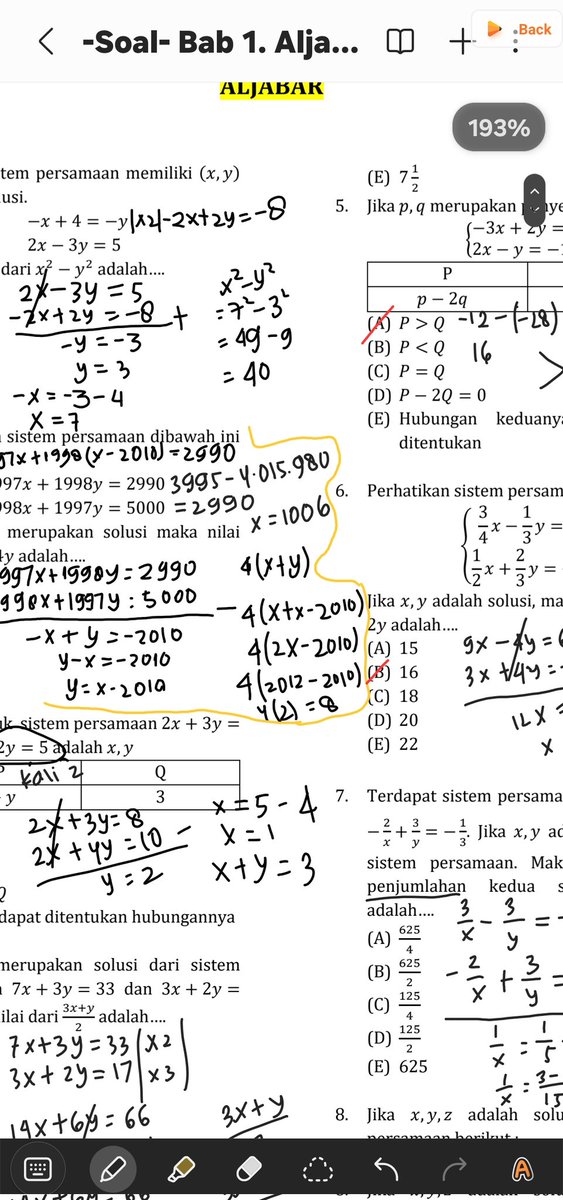 -Soal- Bab 1. Alja...
Back
ALJABAR
193%
tem persamaan memiliki (x, y)
usi.
−x + 4 = −y |x2| −2x+2y = −8
2x − 3y = 5
dari x² − y² adalah....
2x − 3y = 5
−2x + 2y = −8 +
−y = −3
y = 3
−x = −3 − 4
x = 7
x² − y²
= 7² − 3²
= 49 − 9
= 40
sistem persamaan dibawah ini
97x + 1998(x − 2010) = 2990
997x + 1998y = 2990 3995 − 4.015.980
998x + 1997y = 5000 = 2990
x = 1006
merupakan solusi maka nilai
y adalah....
997x + 1998y = 2990
998x + 1997y : 5000 −
−x + y = −2010
y − x = −2010
y = x − 2010
4(x+y)
4(x+x−2010)
4(2x−2010)
4(2012−2010)
4(2) = 8
sistem persamaan 2x + 3y =
2y = 5 adalah x, y
kali 2
Q
y
3
2x + 3y = 8
2x + 4y = 10 −
y = 2
x = 5 − 4
x = 1
x + y = 3
Q
dapat ditentukan hubungannya
merupakan solusi dari sistem
7x + 3y = 33 dan 3x + 2y =
ilai dari (3x+y)/2 adalah....
7x + 3y = 33 | x2
3x + 2y = 17 | x3
14x + 6y = 66
3x + y
(E) 7 1/2
5. Jika p, q merupakan
{−3x + 2y =
{2x − y = −
P
p − 2q
(A) P > Q −12 − (−28)
(B) P < Q 16
(C) P = Q >
(D) P − 2Q = 0
(E) Hubungan keduany
ditentukan
6. Perhatikan sistem persam
3/4 x − 1/3 y =
1/2 x + 2/3 y =
Jika x, y adalah solusi, ma
2y adalah....
(A) 15
(B) 16
(C) 18
(D) 20
(E) 22
9x − 4y = 6
3x + 4y = −
12x =
x
7. Terdapat sistem persama
−2/x + 3/y = −1/3. Jika x, y ad
sistem persamaan. Mak
penjumlahan kedua s
adalah....
(A) 625/4
(B) 625/2
(C) 125/4
(D) 125/2
(E) 625
3/x − 3/y = −
−2/x + 3/y =
1/x = 1/5
1/x = 3−/15
8. Jika x, y, z adalah solu
A